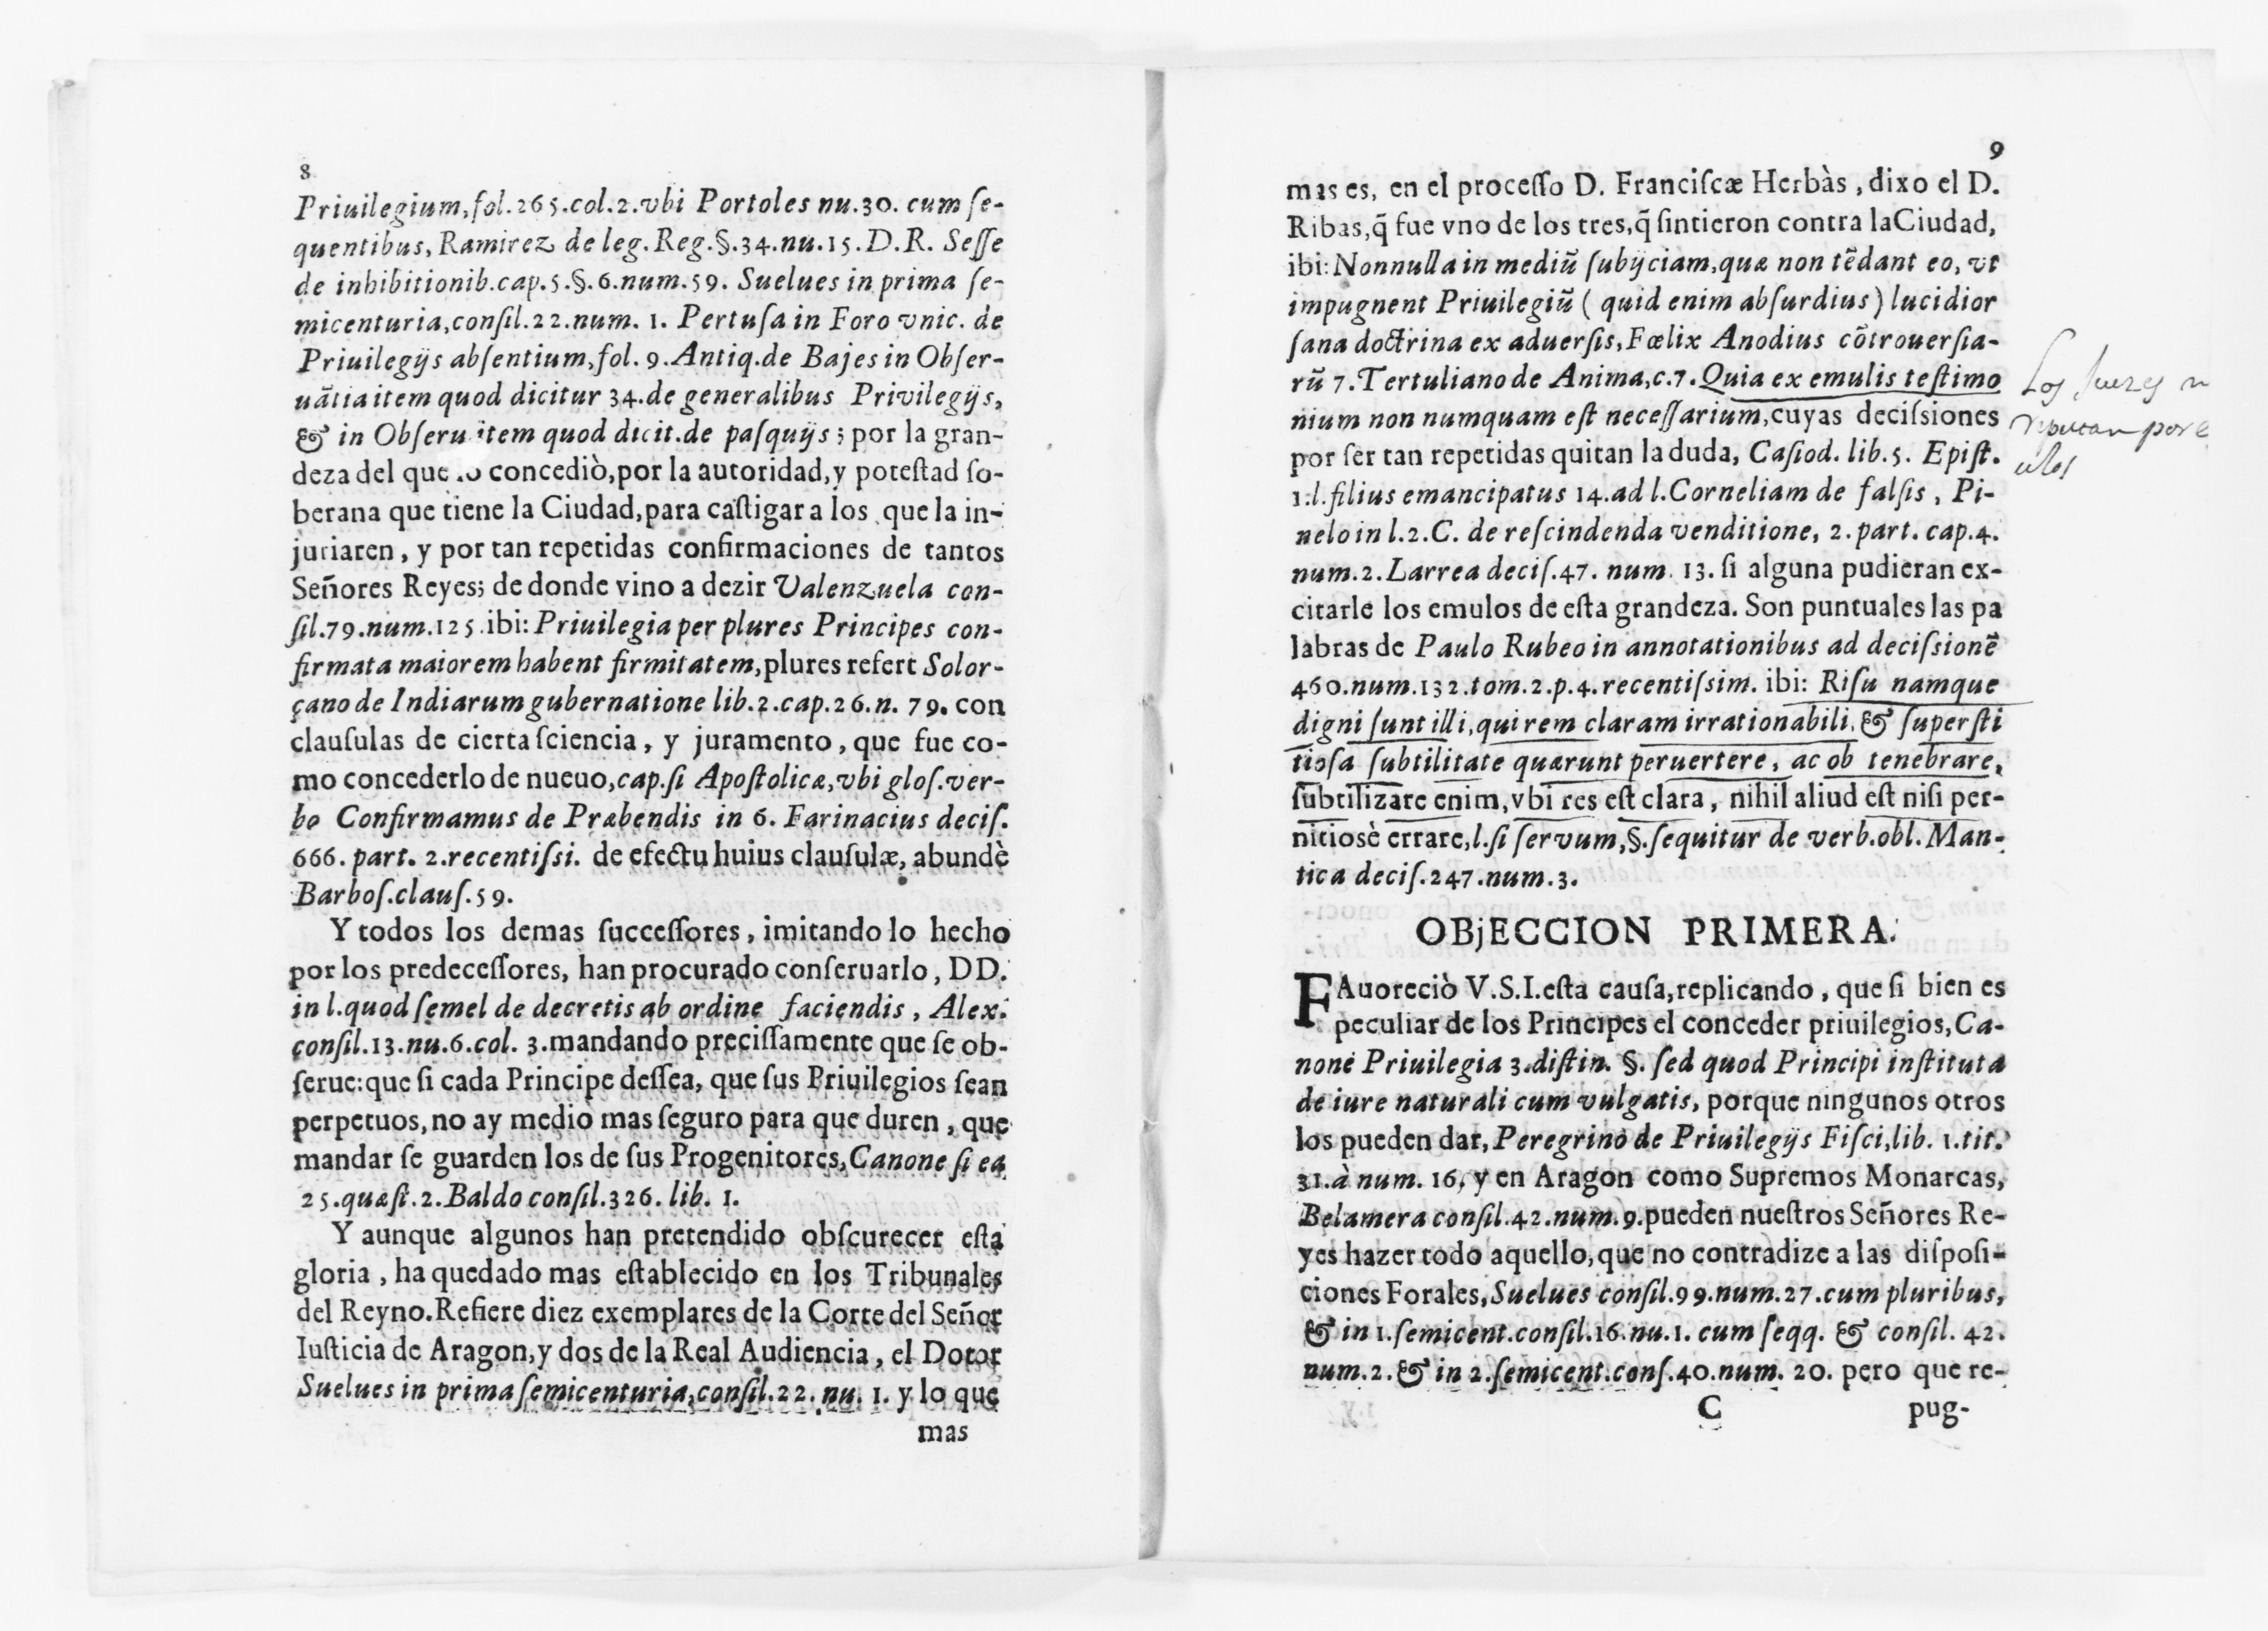 8
Priuilegium, fol.265.col.2.vbi Portoles nu.30. cum ſe-
quentibus, Ramirez de leg.Reg.§.34.nu.15.D.R. Seſſe
de inhibitionib.cap.5.§.6.num.59. Suelues in prima ſe-
micenturia,conſil.22.num. 1. Pertuſa in Foro vnic. de
Priuilegijs abſentium,fol. 9.Antiq.de Bajes in Obſer-
uãtia item quod dicitur 34.de generalibus Privilegijs,
& in Obſeru item quod dicit.de paſquijs; por la gran-
deza del que lo concediò,por la autoridad,y poteſtad ſo-
berana que tiene la Ciudad,para caſtigar a los que la in-
juriaren, y por tan repetidas confirmaciones de tantos
Señores Reyes; de donde vino a dezir Valenzuela con-
ſil.79.num.125.ibi: Priuilegia per plures Principes con-
firmata maiorem habent firmitatem,plures refert Solor-
çano de Indiarum gubernatione lib.2.cap.26.n. 79. con
clauſulas de cierta ſciencia, y juramento, que fue co-
mo concederlo de nueuo,cap.ſi Apoſtolicæ,vbi gloſ.ver-
bo Confirmamus de Præbendis in 6. Farinacius deciſ.
666. part. 2.recentiſſi. de efectu huius clauſulæ, abundè
Barboſ.clauſ.59.
Y todos los demas ſucceſſores, imitando lo hecho
por los predeceſſores, han procurado conſeruarlo, DD.
in l.quod ſemel de decretis ab ordine faciendis, Alex.
conſil.13.nu.6.col. 3.mandando preciſſamente que ſe ob-
ſerue:que ſi cada Principe deſſea, que ſus Priuilegios ſean
perpetuos, no ay medio mas ſeguro para que duren, que
mandar ſe guarden los de ſus Progenitores,Canone ſi ea
25.quæſt.2.Baldo conſil.326. lib. 1.
Y aunque algunos han pretendido obſcurecer eſta
gloria, ha quedado mas eſtablecido en los Tribunales
del Reyno.Refiere diez exemplares de la Corte del Señor
Iuſticia de Aragon,y dos de la Real Audiencia, el Dotor
Suelues in prima ſemicenturia,conſil.22. nu. 1. y lo que
mas
9
mas es, en el proceſſo D. Franciſcæ Herbàs, dixo el D.
Ribas,q̃ fue vno de los tres,q̃ ſintieron contra la Ciudad,
ibi: Nonnulla in mediũ ſubijciam,quæ non tẽdant eo, vt
impugnent Priuilegiũ ( quid enim abſurdius ) lucidior
ſana doctrina ex aduerſis, Fœlix Anodius cõtrouerſia-
rũ 7.Tertuliano de Anima,c.7.Quia ex emulis teſtimo
nium non numquam eſt neceſſarium,cuyas deciſsiones
por ſer tan repetidas quitan la duda, Caſiod. lib.5. Epiſt.
1.l.filius emancipatus 14.ad l.Corneliam de falſis, Pi-
nelo in l.2.C. de reſcindenda venditione, 2.part. cap.4.
num.2.Larrea deciſ.47. num. 13. ſi alguna pudieran ex-
citarle los emulos de eſta grandeza. Son puntuales las pa
labras de Paulo Rubeo in annotationibus ad deciſsionẽ
460.num.132.tom.2.p.4.recentiſsim. ibi: Riſu namque
digni ſunt illi,qui rem claram irrationabili,& ſuperſti
tioſa ſubtilitate quærunt peruertere, ac ob tenebrare,
ſubtilizare enim,vbi res eſt clara, nihil aliud eſt niſi per-
nitiosè errare,l.ſi ſervum,§.ſequitur de verb.obl.Man-
tica deciſ.247.num.3.
Los Juezes
reputan por
OBjECCION PRIMERA.
FAuoreciò V.S.I.eſta cauſa,replicando, que ſi bien es
peculiar de los Principes el conceder priuilegios,Ca-
none Priuilegia 3.diſtin. §. ſed quod Principi inſtituta
de iure naturali cum vulgatis, porque ningunos otros
los pueden dar, Peregrino de Priuilegijs Fiſci,lib. 1.tit.
31.à num. 16, y en Aragon como Supremos Monarcas,
Belamera conſil.42.num.9.pueden nueſtros Señores Re-
yes hazer todo aquello,que no contradize a las diſpoſi-
ciones Forales,Suelues conſil.99.num.27.cum pluribus,
& in 1.ſemicent.conſil.16.nu.1. cum ſeqq. & conſil. 42.
num.2.& in 2.ſemicent.conſ.40.num. 20. pero que re-
C pug-